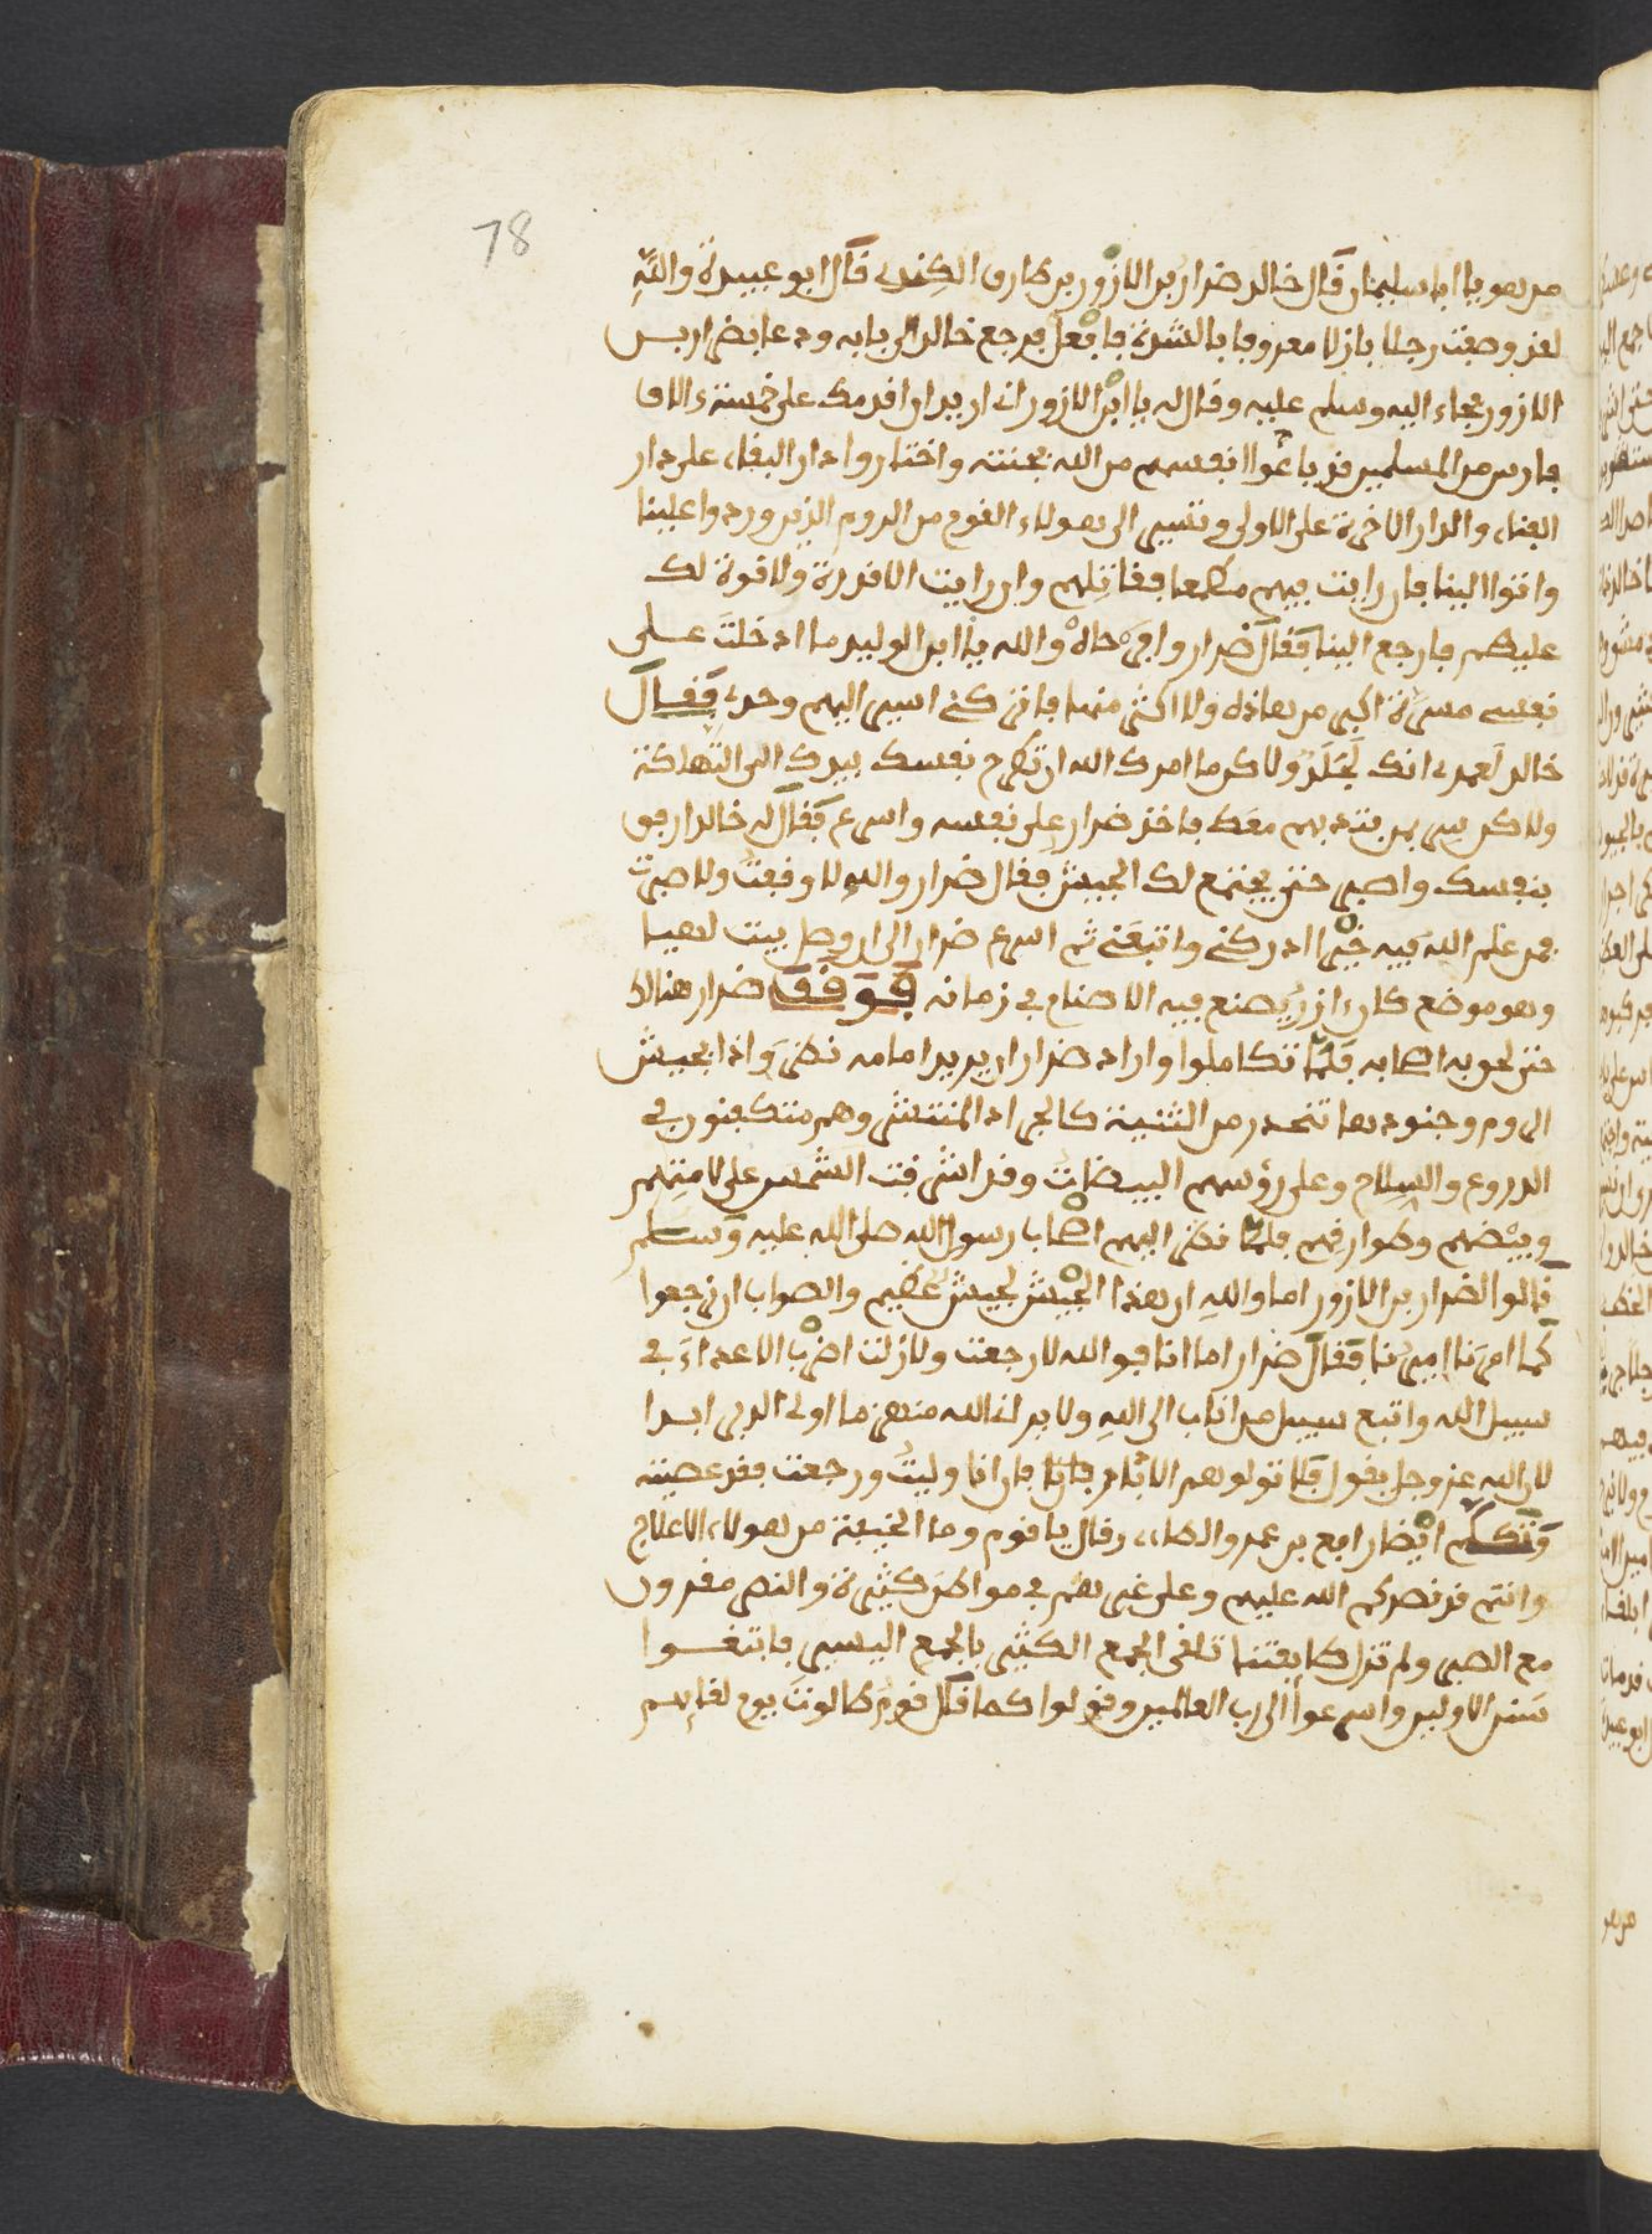 78
من هو يا ابا سليمان قال خالد ضرار بن الازور بن طارق الكندي قال ابو عبيدة والله
لقد وصفت رجلا باذلا معروفا بالشدة فافعل فرجع خالد الى بابه ودعا بضرار بن
الازور فجاء اليه وسلم عليه وقال له يا ابن الازور اني اريد ان اقدمك على خمسة ءالاف
فارس من المسلمين قد باعوا انفسهم من الله بجنته واختاروا دار البقاء على دار
الفناء والدار الاخرة على الاولى وتسير الى هولاء القوم من الروم الذين وردوا علينا
واتوا الينا فان رايت فيهم مطمعا فقاتلهم وان رايت الا قدرة ولا قوة لك
عليهم فارجع الينا فقال ضرار وافرحاه والله يا ابن الوليد ما ادخلت على
نفسي مسرة اكبر من هاذه ولا اكثر منها فاتركني اسير اليهم وحدي فقال
خالد لعمري انك لجلد ولاكن ما امرك الله ان تطرح نفسك بيدك الى التهلكة
ولاكن سر بمن بتدبهم معك فاخذ ضرار على نفسه واسرع فقال له خالد ارفق
بنفسك واصبر حتى يجتمع لك الجيش فقال ضرار والله لا وقفت ولا صبرت
فمن علم الله فيه خيرا ادركني واتبعني ثم اسرع ضرار الى ان وصل بيت لهيا
وهو موضع كان ءازر يصنع فيه الاصنام في زمانه فوقف ضرار هنالك
حتى لحق به اصحابه فلما تكاملوا واراد ضرار ان يريد امامه نظر واذا بجيش
الروم وجنودها تنحدر من الثنية كالجراد المنتشر وهم متكفنون في
الدروع والسلاح وعلى رؤسهم البيضات وقد اشرقت الشمس على لامتهم
وبيضهم وطوارقهم فلما نظر اليهم اصحاب رسول الله صلى الله عليه وسلم
قالوا لضرار بن الازور اما والله ان هذا الجيش لجيش عظيم والصواب ان نرجعوا
كما امرنا اميرنا فقال ضرار اما انا فوالله لا رجعت ولا زلت اضرب الاعداء في
سبيل الله واتبع سبيل من اناب الى الله ولا يراني الله منهزما اولي الدبر ابدا
لان الله عز وجل يقول فلا تولوهم الادبار فان انا وليت ورجعت فقد عصيته
وتكلم ايضا رافع بن عمر والطاءي وقال يا قوم وما الخيفة من هولاء الاعلاج
وانتم قد نصركم الله عليهم وعلى غيرهم في مواطن كثيرة والنصر مقرون
مع الصبر ولم تزل طايفتنا تلقى الجمع الكثير بالجمع اليسير فاتبعوا
سنن الاولين واسرعوا الى رب العالمين وقولوا كما قال قوم طالوت يوم لقايهم